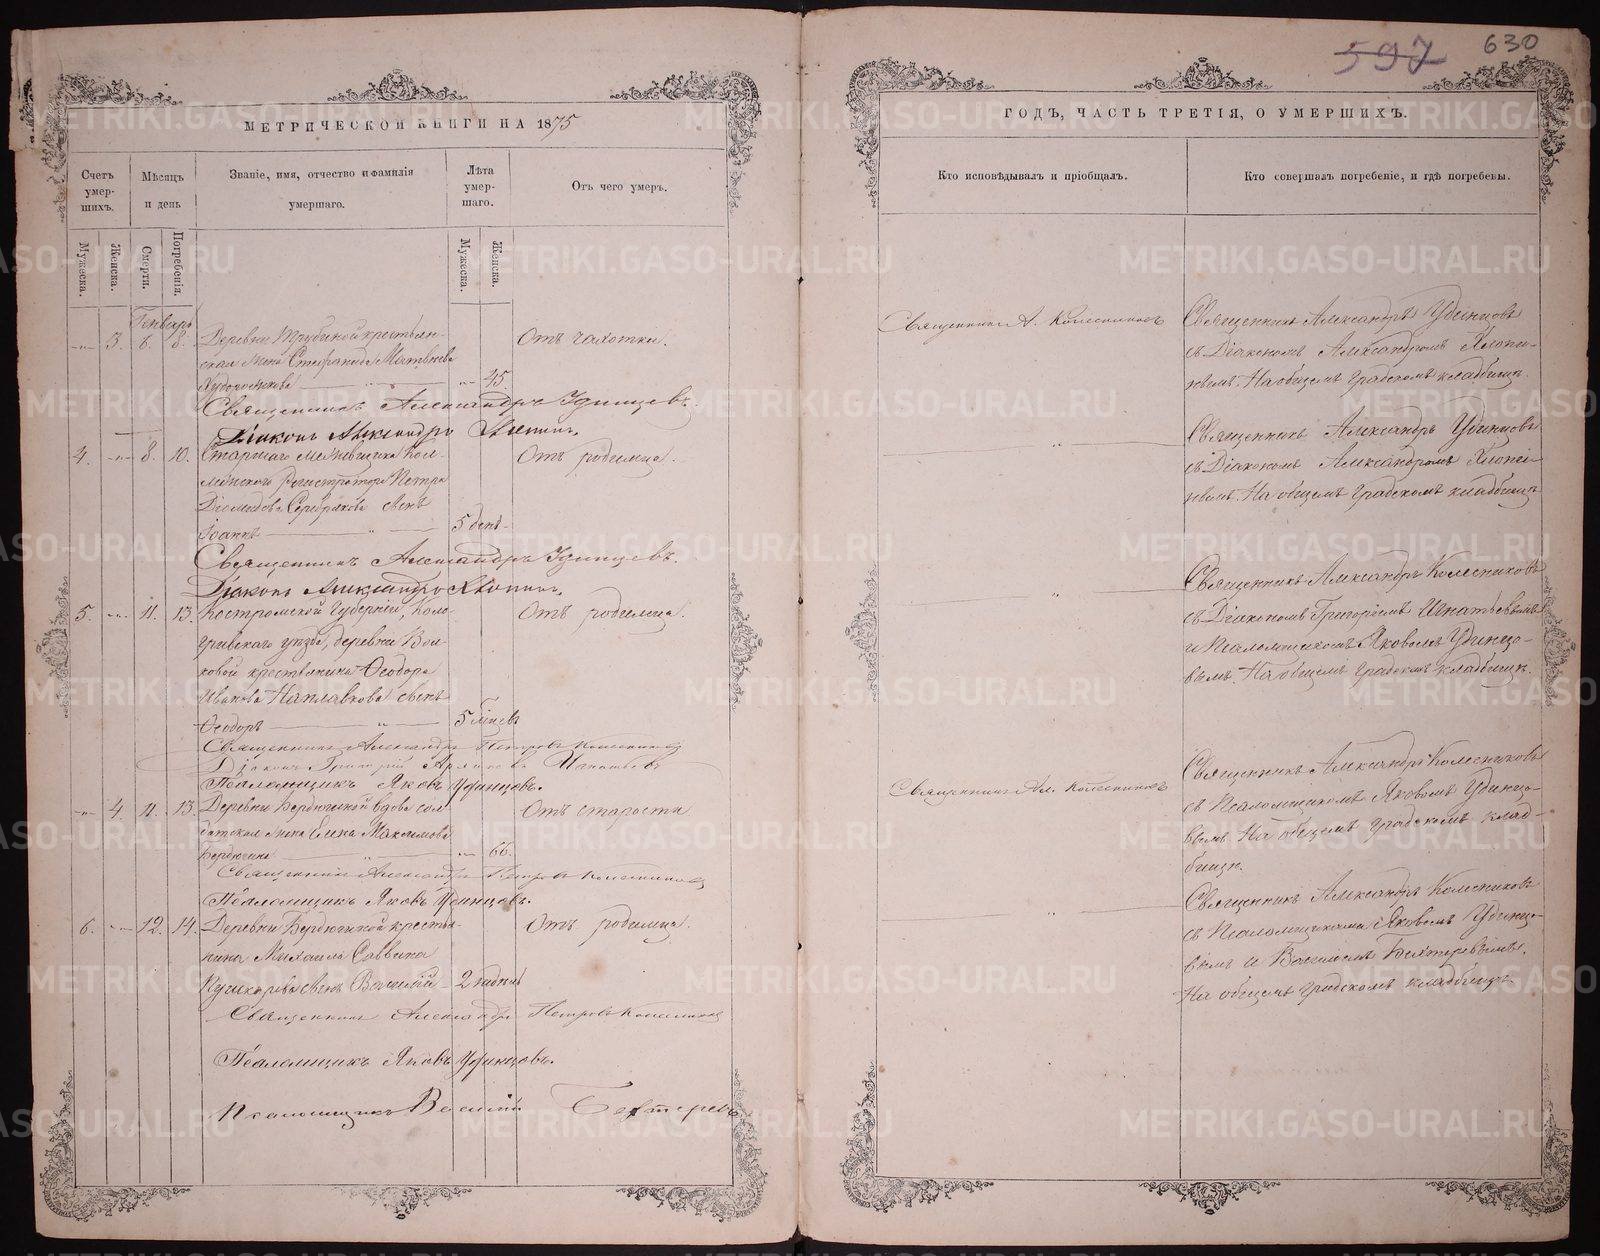 597
630
МЕТРИЧЕСКОЙ КНИГИ НА 1875
Счетъ умер-
шихъ.
Мѣсяцъ
и день
Званіе, имя, отчество и фамилія
умершаго.
Лѣта
умер-
шаго.
Отъ чего умеръ.
Мужеска.
Женска.
Смерти.
Погребенія.
Мужеска.
Женска.
Генварь
3. 6. 8. Деревни Трубиной крестьян-
ская жена Стефанида Матвѣева
45.
Отъ чахотки.
Священникъ Александръ Удинцевъ.
Діаконъ Александръ Хлопинъ.
4. 8. 10. Старшаго
Регистратора Петра
Діомидова Серебрякова сынъ
Іоаннъ 5 день
Отъ родимца.
Священникъ Александръ Удинцевъ.
Діаконъ Александръ Хлопинъ.
5. 11. 13. Костромской Губерніи, Коло-
гривскаго уѣзда, деревни Вол-
ковой крестьянина Ѳеодора
Иванова Наплавкова сынъ
Ѳеодоръ 5
Отъ родимца.
Священникъ Александръ Петровъ Колесниковъ
Діаконъ Григорій Игнатьевъ
Псаломщикъ Яковъ Удинцовъ.
4. 11. 13. Деревни Бердюгиной вдова сол-
датская жена Елена Максимова
Бердюгина 66.
Отъ старости
Священникъ Александръ Петровъ Колесниковъ
Псаломщикъ Яковъ Удинцовъ.
6. 12. 14. Деревни Бердюгиной крестья-
нина Михаила Саввина
Пушкарева сынъ Василій 2
Отъ родимца.
Священникъ Александръ Петровъ Колесниковъ
Псаломщикъ Яковъ Удинцовъ.
Псаломщикъ Василій Бехтеревъ
ГОДЪ, ЧАСТЬ ТРЕТІЯ, О УМЕРШИХЪ.
Кто исповѣдывалъ и пріобщалъ.
Кто совершалъ погребеніе, и гдѣ погребены.
Священникъ А. Колесниковъ
Священникъ Александръ Удинцовъ
съ Діакономъ Александромъ Хлопи-
нымъ. На общемъ градскомъ кладбищѣ.
Священникъ Александръ Удинцовъ
съ Діакономъ Александромъ Хлопи-
нымъ. На общемъ градскомъ кладбищѣ
Священникъ Александръ Колесниковъ
съ Діакономъ Григоріемъ Игнатьевымъ
и Псаломщикомъ Яковомъ Удинцо-
вымъ. На общемъ градскомъ кладбищѣ.
Священникъ Ал. Колесниковъ
Священникъ Александръ Колесниковъ
съ Псаломщикомъ Яковомъ Удинцо-
вымъ На общемъ градскомъ клад-
бищѣ.
Священникъ Александръ Колесниковъ
съ Псаломщиками Яковомъ Удинцо-
вымъ и Василіемъ Бехтеревымъ.
На общемъ градскомъ кладбищѣ.
METRIKI.GASO-URAL.RU